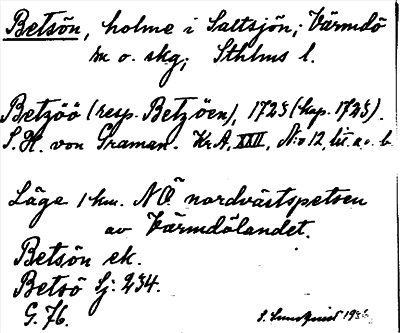 Betsön, holme i Saltsjön; Värmdö
sn o. skg; Sthlms l.
Betzöö (resp. Betzöen), 1725 (kop. 1725).
S. H. von Graman. Kr.A, XXII, N:o 12, lit. a o. b
Läge 1 km. NÖ nordvästspetsen
av Värmdölandet.
Betsön ek.
Betsö Sj: 234.
G. 76.